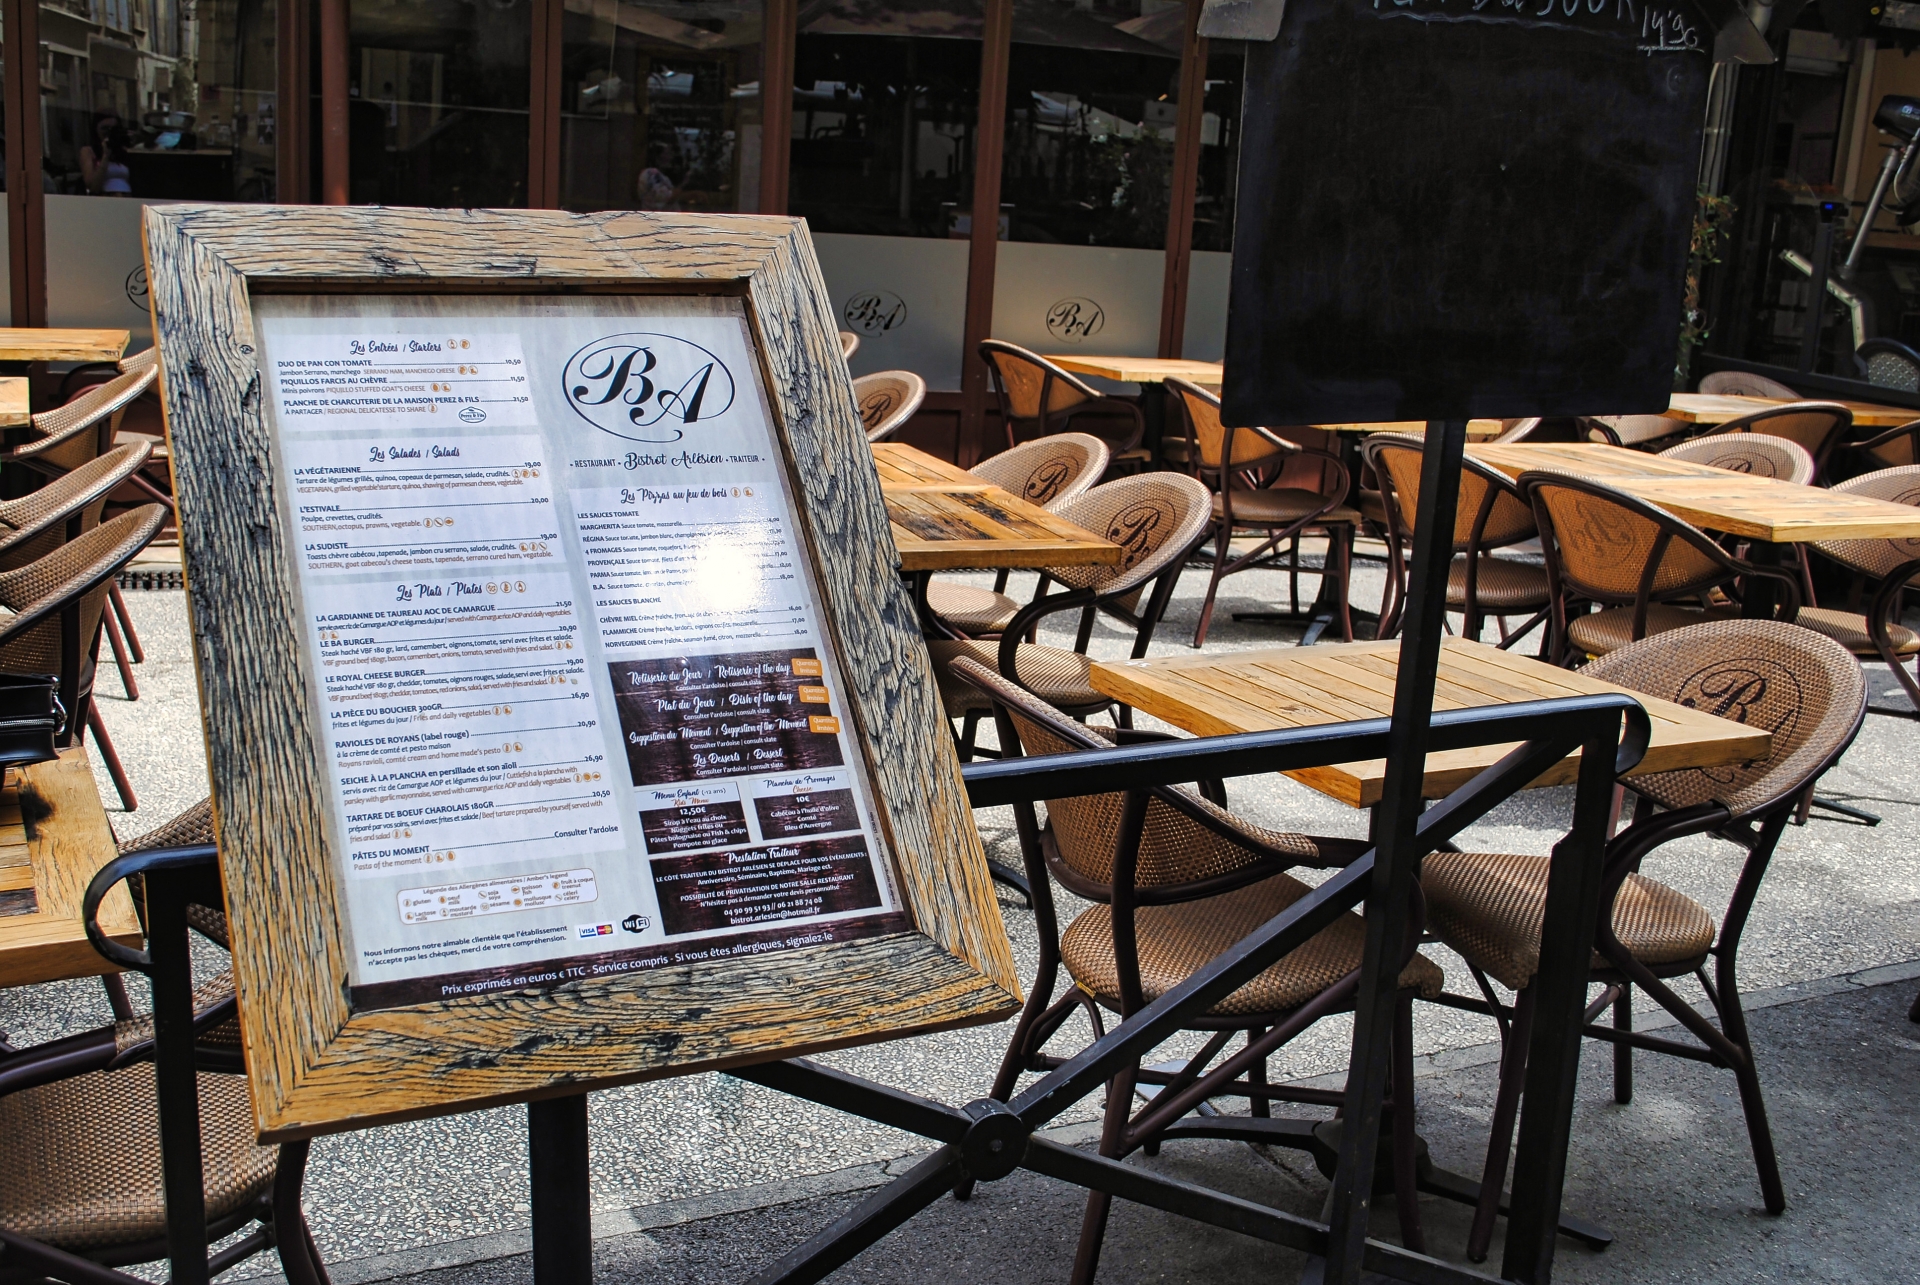 Les Entrées / Starters
DUO DE PAN CON TOMATE 10,50
Jambon Serrano, manchego SERRANO HAM, MANCHEGO CHEESE
PIQUILLOS FARCIS AU CHÈVRE 11,50
Minis poivrons PIQUILLO STUFFED GOAT'S CHEESE
PLANCHE DE CHARCUTERIE DE LA MAISON PEREZ & FILS 21,50
À PARTAGER / REGIONAL DELICATESSE TO SHARE
Perez & Fils
Les Salades / Salads
LA VÉGÉTARIENNE 19,00
Tartare de légumes grillés, quinoa, copeaux de parmesan, salade, crudités.
VEGETARIAN, grilled vegetable'startare, quinoa, shaving of parmesan cheese, vegetable.
L'ESTIVALE 20,00
Poulpe, crevettes, crudités.
SOUTHERN, octopus, prawns, vegetable.
LA SUDISTE 19,00
Toasts chèvre cabécou, tapenade, jambon cru serrano, salade, crudités.
SOUTHERN, goat cabecou's cheese toasts, tapenade, serrano cured ham, vegetable.
Les Plats / Plates
LA GARDIANNE DE TAUREAU AOC DE CAMARGUE 21,50
servie avec riz de Camargue AOP et légumes du jour / served with Camargue rice AOP and daily vegetables.
LE BA BURGER 20,90
Steak haché VBF 180 gr, lard, camembert, oignons, tomate, servi avec frites et salade.
VBF ground beef 180gr, bacon, camembert, onions, tomato, served with fries and salad.
LE ROYAL CHEESE BURGER 19,00
Steak haché VBF 180 gr, cheddar, tomates, oignons rouges, salade, servi avec frites et salade.
VBF ground beef 180gr, cheddar, tomatoes, red onions, salad, served with fries and salad.
LA PIÈCE DU BOUCHER 300GR 26,90
frites et légumes du jour / Fries and daily vegetables
RAVIOLES DE ROYANS (label rouge) 20,90
à la crème de comté et pesto maison
Royans ravioli, comté cream and home made's pesto
SEICHE À LA PLANCHA en persillade et son aïoli 26,90
servis avec riz de Camargue AOP et légumes du jour / Cuttlefish a la plancha with
parsley with garlic mayonnaise, served with camargue rice AOP and daily vegetables
TARTARE DE BOEUF CHAROLAIS 180GR 20,50
préparé par vos soins, servi avec frites et salade / Beef tartare prepared by yourself, served with
fries and salad
PÂTES DU MOMENT Consulter l'ardoise
Pasta of the moment
Légende des Allergènes alimentaires / Amber's legend
gluten oeuf milk soja soye poisson fish fruit à coque treenut
Lactose milk moutarde mustard sésame mollusque mollusc céleri celery
Nous informons notre aimable clientèle que l'établissement
n'accepte pas les chèques, merci de votre compréhension.
VISA
WiFi
BA
• RESTAURANT • Bistrot Arlésien • TRAITEUR •
Les Pizzas au feu de bois
LES SAUCES TOMATE
MARGHERITA Sauce tomate, mozzarella 14,00
RÉGINA Sauce tomate, jambon blanc, champignons
4 FROMAGES Sauce tomate, roquefort
PROVENÇALE Sauce tomate, filets d'an 17,00
PARMA Sauce tomate, jambon de Parme 18,00
B.A. Sauce tomate 18,00
LES SAUCES BLANCHE
CHÈVRE MIEL Crème fraîche, fromage de chèvre 16,00
FLAMMICHE Crème fraîche, lardons, oignons confits, mozzarella 17,00
NORVEGIENNE Crème fraîche, saumon fumé, citron, mozzarella 18,00
Rotisserie du Jour / Rotisserie of the day
Quantités limitées
Consulter l'ardoise | consult slate
Plat du Jour / Dish of the day
Quantités limitées
Consulter l'ardoise | consult slate
Suggestion du Moment / Suggestion of the Moment
Quantités limitées
Consulter l'ardoise | consult slate
Les Desserts / Dessert
Consulter l'ardoise | consult slate
Menu Enfant (-12 ans)
Kids Menu
12,50€
Sirop à l'eau au choix
Nuggets frites ou
Pâtes bolognaise ou Fish & chips
Pompote ou glace
Plancha de Fromages
Cheese
10€
Cabécou à l'huile d'olive
Comté
Bleu d'Auvergne
Prestation Traiteur
LE CÔTÉ TRAITEUR DU BISTROT ARLÉSIEN SE DÉPLACE POUR VOS ÉVÉNEMENTS :
Anniversaire, Séminaire, Baptême, Mariage ect.
POSSIBILITÉ DE PRIVATISATION DE NOTRE SALLE RESTAURANT
N'hésitez pas à demander votre devis personnalisé
04 90 99 51 93 // 06 21 88 74 08
bistrot.arlesien@hotmail.fr
Prix exprimés en euros € TTC - Service compris - Si vous êtes allergiques, signalez-le
BA
BA
BA
BA